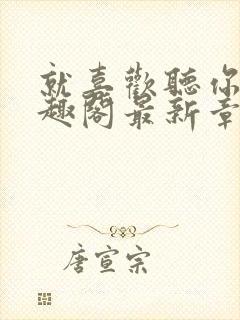 就喜歡聽你
趣閣最新章
唐宣宗